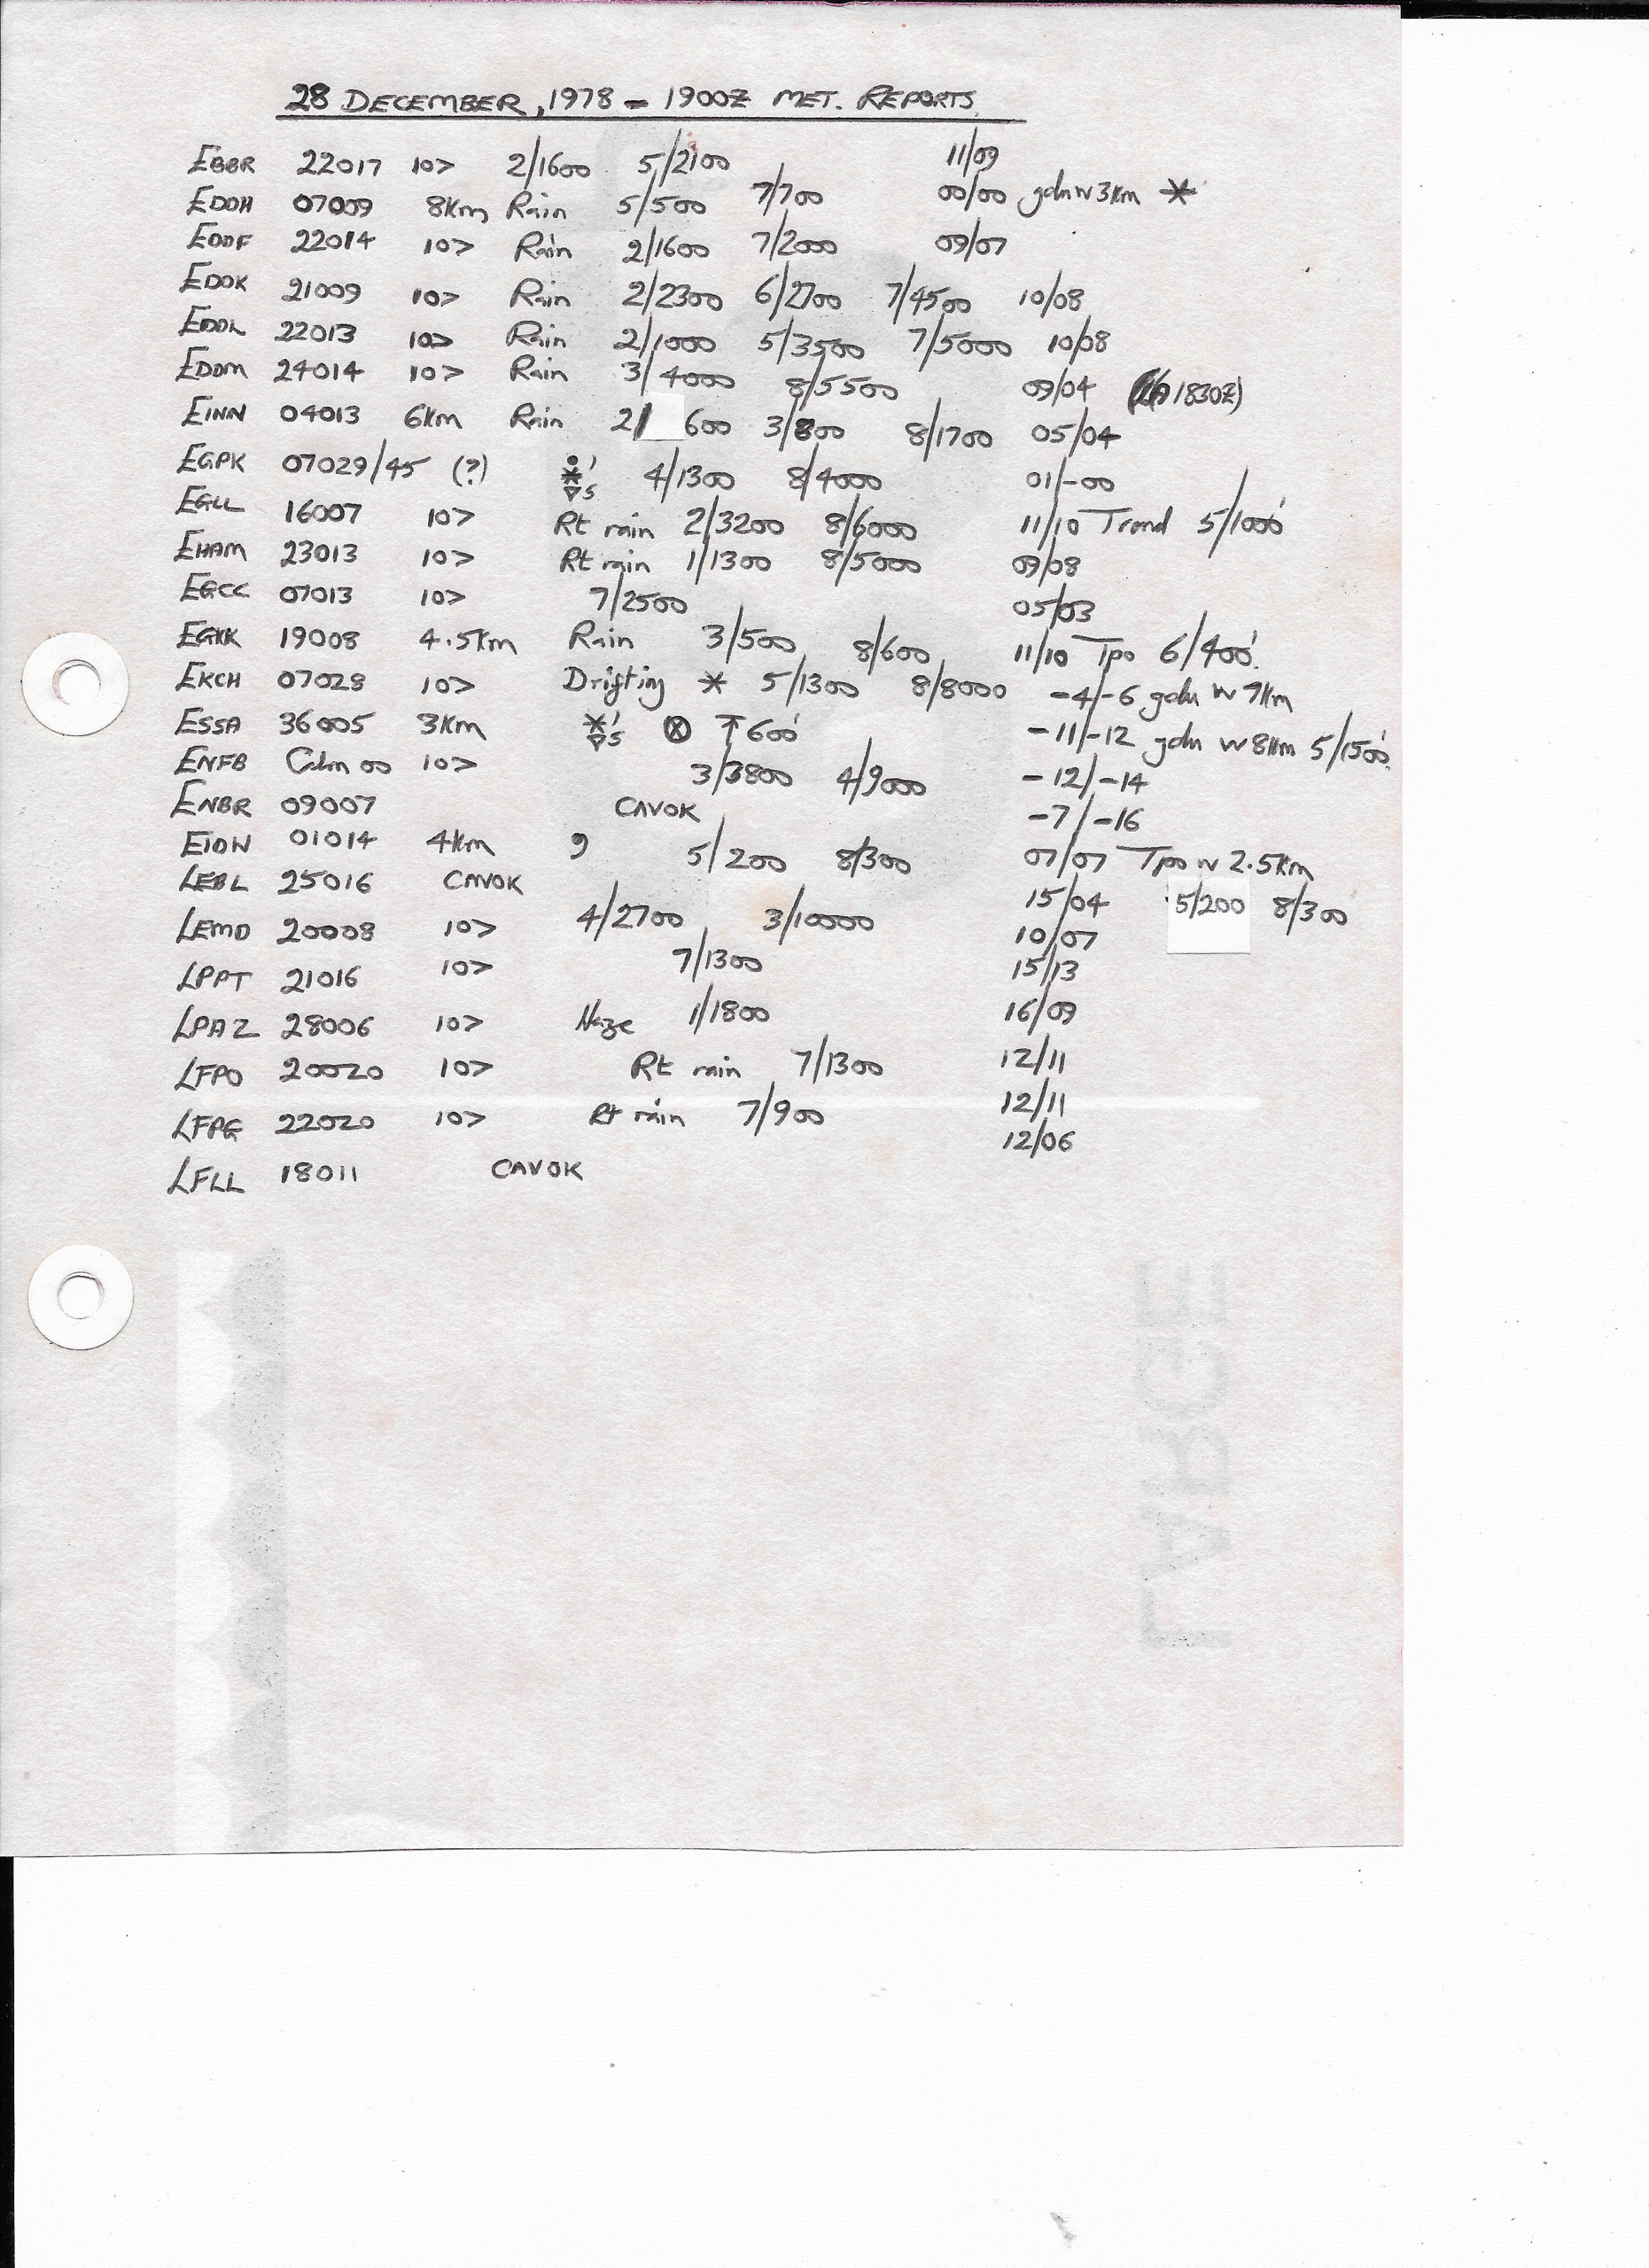 28 DECEMBER, 1978 - 1900Z MET. REPORTS.
EBBR 22017 10> 2/1600 5/2100 11/09
EDDH 07009 8Km Rain 5/500 7/700 00/00 gdu w 3Km *
EDDF 22014 10> Rain 2/1600 7/2000 09/07
EDDK 21009 10> Rain 2/2300 6/2700 7/4500 10/08
EDDL 22013 10> Rain 2/1000 5/3500 7/5000 10/08
EDDM 24014 10> Rain 3/4000 8/5500 09/04 1830Z)
EINN 04013 6Km Rain 2/600 3/800 8/1700 05/04
EGPK 07029/45 (?) *s 4/1300 8/4000 01/-00
EGLL 16007 10> Rt rain 2/3200 8/6000 11/10 Trend 5/1000'
EHAM 23013 10> Rt rain 1/1300 8/5000 09/08
EGCC 07013 10> 7/2500 05/03
EGKK 19008 4.5Km Rain 3/500 8/600 11/10 Tpo 6/400'.
EKCH 07028 10> Drifting * 5/1300 8/8000 -4/-6 gdu w 9Km
ESSA 36005 3Km *s ⊗ ↑600' -11/-12 gdu w 8Km 5/1500'.
ENFB Calm 00 10> 3/3800 4/9000 -12/-14
ENBR 09007 CAVOK -7/-16
EIDW 01014 4Km 9 5/200 8/300 07/07 Tpo w 2.5Km 5/200 8/300
LEBL 25016 CAVOK 15/04
LEMD 20008 10> 4/2700 3/10000 10/07
LPPT 21016 10> 7/1300 15/13
LPAZ 28006 10> Haze 1/1800 16/09
LFPO 20020 10> Rt rain 7/1300 12/11
LFPG 22020 10> Rt rain 7/900 12/11
LFLL 18011 CAVOK 12/06
LARGE